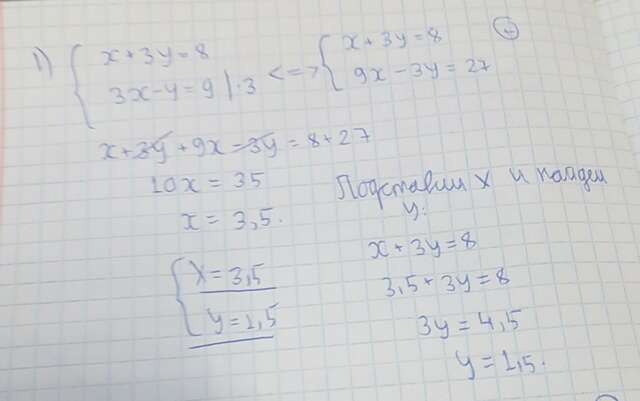 1) { x + 3y = 8
3x - y = 9 | · 3 <=> { x + 3y = 8
9x - 3y = 27
+
x + 3y + 9x - 3y = 8 + 27
10x = 35
x = 3,5.
Подставим x и найдем
y:
x + 3y = 8
3,5 + 3y = 8
3y = 4,5
y = 1,5.
{ x = 3,5
y = 1,5